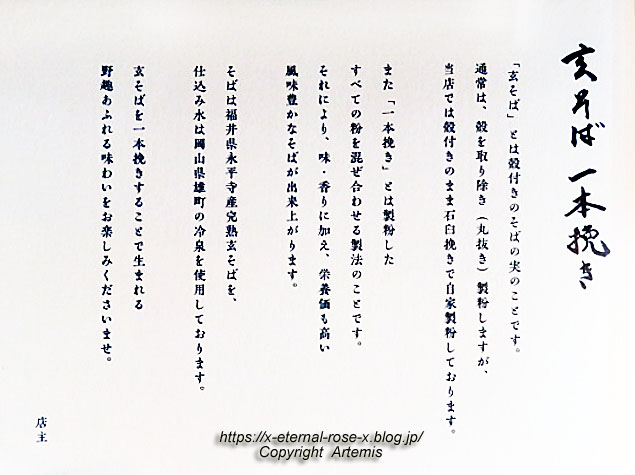 玄そば 一本挽き
「玄そば」とは殻付きのそばの実のことです。
通常は、殻を取り除き(丸抜き)製粉しますが、
当店では殻付きのまま石臼挽きで自家製粉しております。
また「一本挽き」とは製粉した
すべての粉を混ぜ合わせる製法のことです。
それにより、味・香りに加え、栄養価も高い
風味豊かなそばが出来上がります。
そばは福井県永平寺産完熟玄そばを、
仕込み水は岡山県雄町の冷泉を使用しております。
玄そばを一本挽きすることで生まれる
野趣あふれる味わいをお楽しみくださいませ。
店主
https://x-eternal-rose-x.blog.jp/
Copyright Artemis